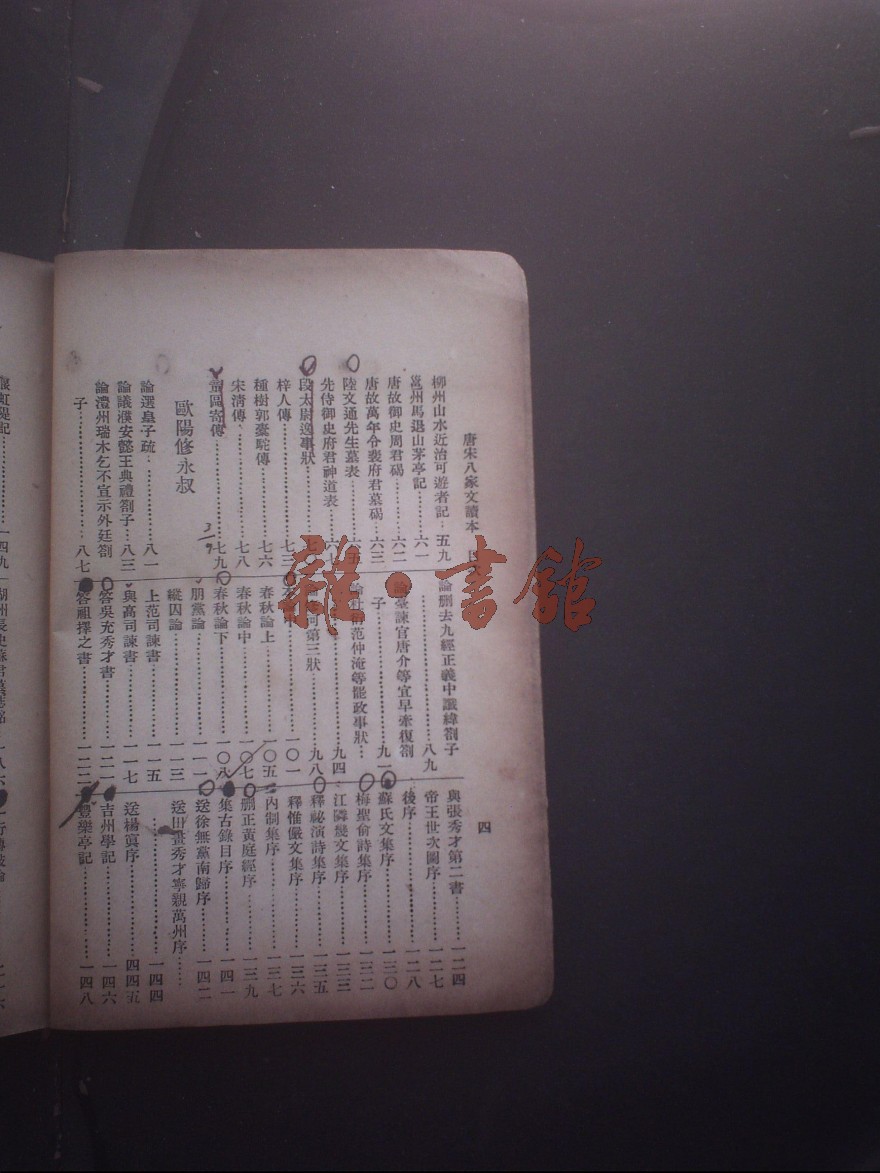 唐宋八家文讀本
四
柳州山水近治可遊者記…五九
邕州馬退山茅亭記…六一
唐故御史周君碣…六二
唐故萬年令裴府君墓碣…六三
陸文通先生墓表
先侍御史府君神道表…六七
段太尉逸事狀
梓人傳…七三
種樹郭橐駝傳…七六
宋清傳…七八
童區寄傳…七九
歐陽修永叔
論選皇子疏…八一
論議濮安懿王典禮劄子…八三
論澧州瑞木乞不宣示外廷劄
子…八七
論刪去九經正義中讖緯劄子
…八九
論臺諫官唐介等宜早牽復劄
子…九一
范仲淹等罷政事狀…
…九四
河第三狀…九八
一〇一
春秋論上…一〇五
春秋論中…一〇七
春秋論下…一〇八
朋黨論…一一一
縱囚論…一一三
上范司諫書…一一五
與高司諫書…一一七
答吳充秀才書…一二一
答祖擇之書…一二二
與張秀才第二書…一二四
帝王世次圖序…一二七
後序…一二八
蘇氏文集序…一三〇
梅聖俞詩集序…一三二
江隣幾文集序…一三三
釋祕演詩集序…一三五
釋惟儼文集序…一三六
內制集序…一三七
刪正黃庭經序…一三九
集古錄目序…一四一
送徐無黨南歸序…一四二
送田畫秀才寧親萬州序…
…一四四
送楊寘序…四四五
吉州學記…一四六
豐樂亭記…一四八
偃虹隄記…一四九
湖州長史蘇君墓誌銘…一八六
雜·書館